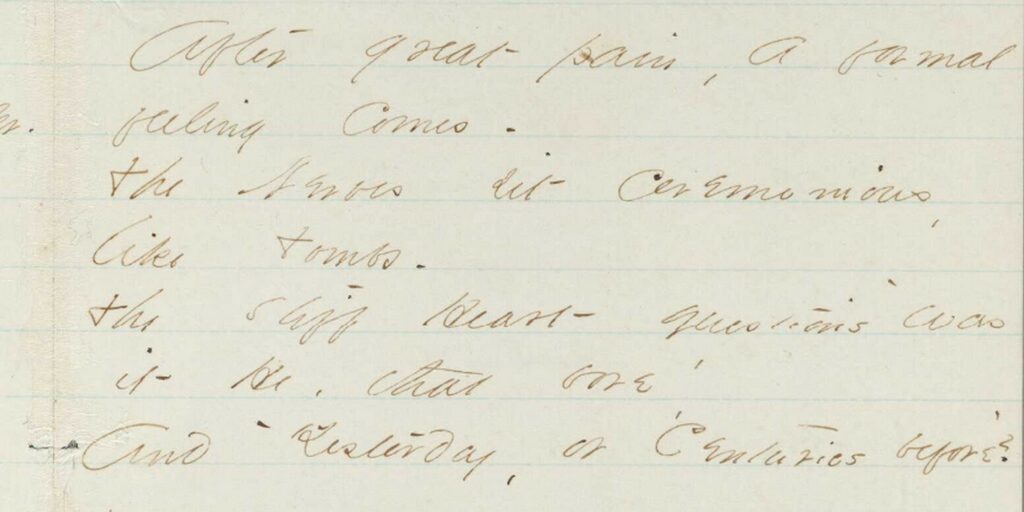 After great pain, a formal
feeling comes -
The Nerves sit Ceremonious,
like Tombs -
The stiff Heart questions 'was
it He, that bore,'
And 'Yesterday, or 'Centuries before'?